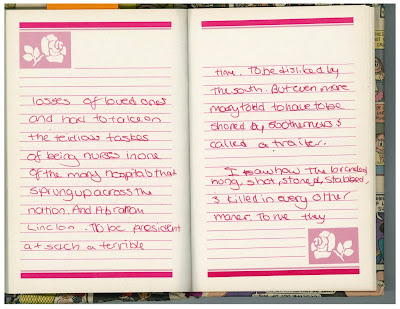 losses of loved ones
and had to take on
the tedious taskes
of being nurses in one
of the many hospitals that
sprung up across the
nation. And Abraham
Lincion. To be president
at such a terrible
time. To be disliked by
the south. But even more
many told to have to be
shored by southerners &
called a traiter.
I saw how The branded
hong, shot, stoned, stabbed,
& killed in every other
maner. To me they